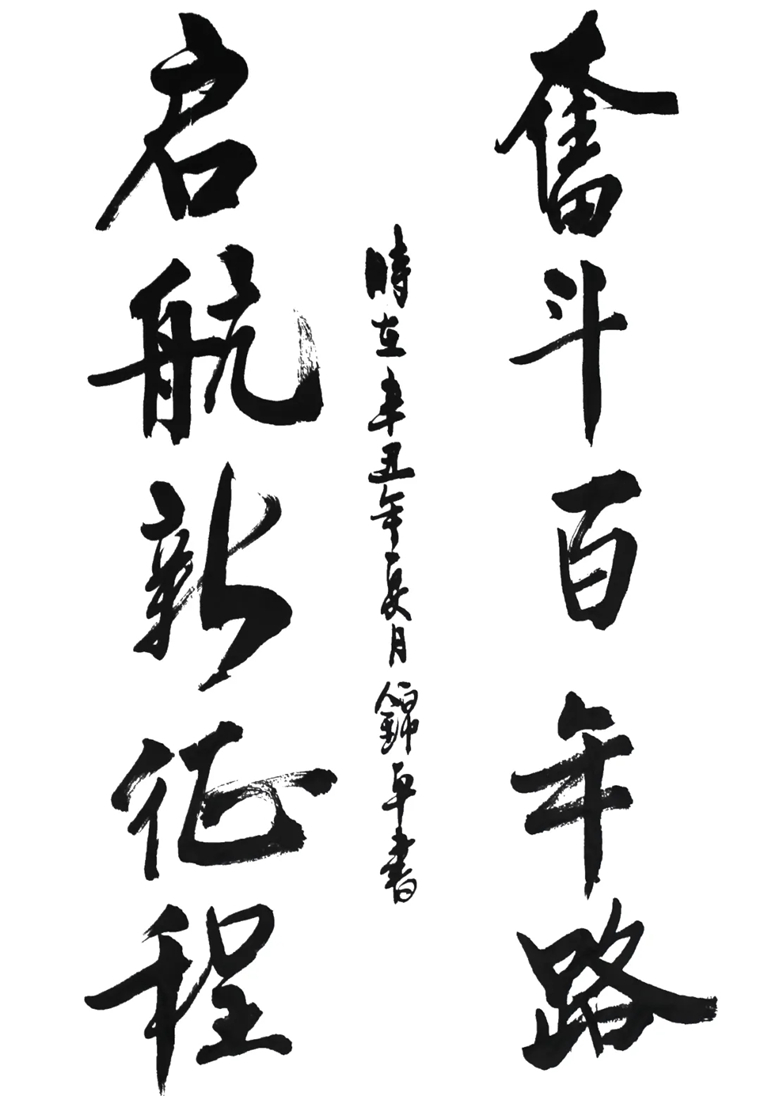 奮斗百年路
启航新征程
時在辛丑年夏月錦卓書